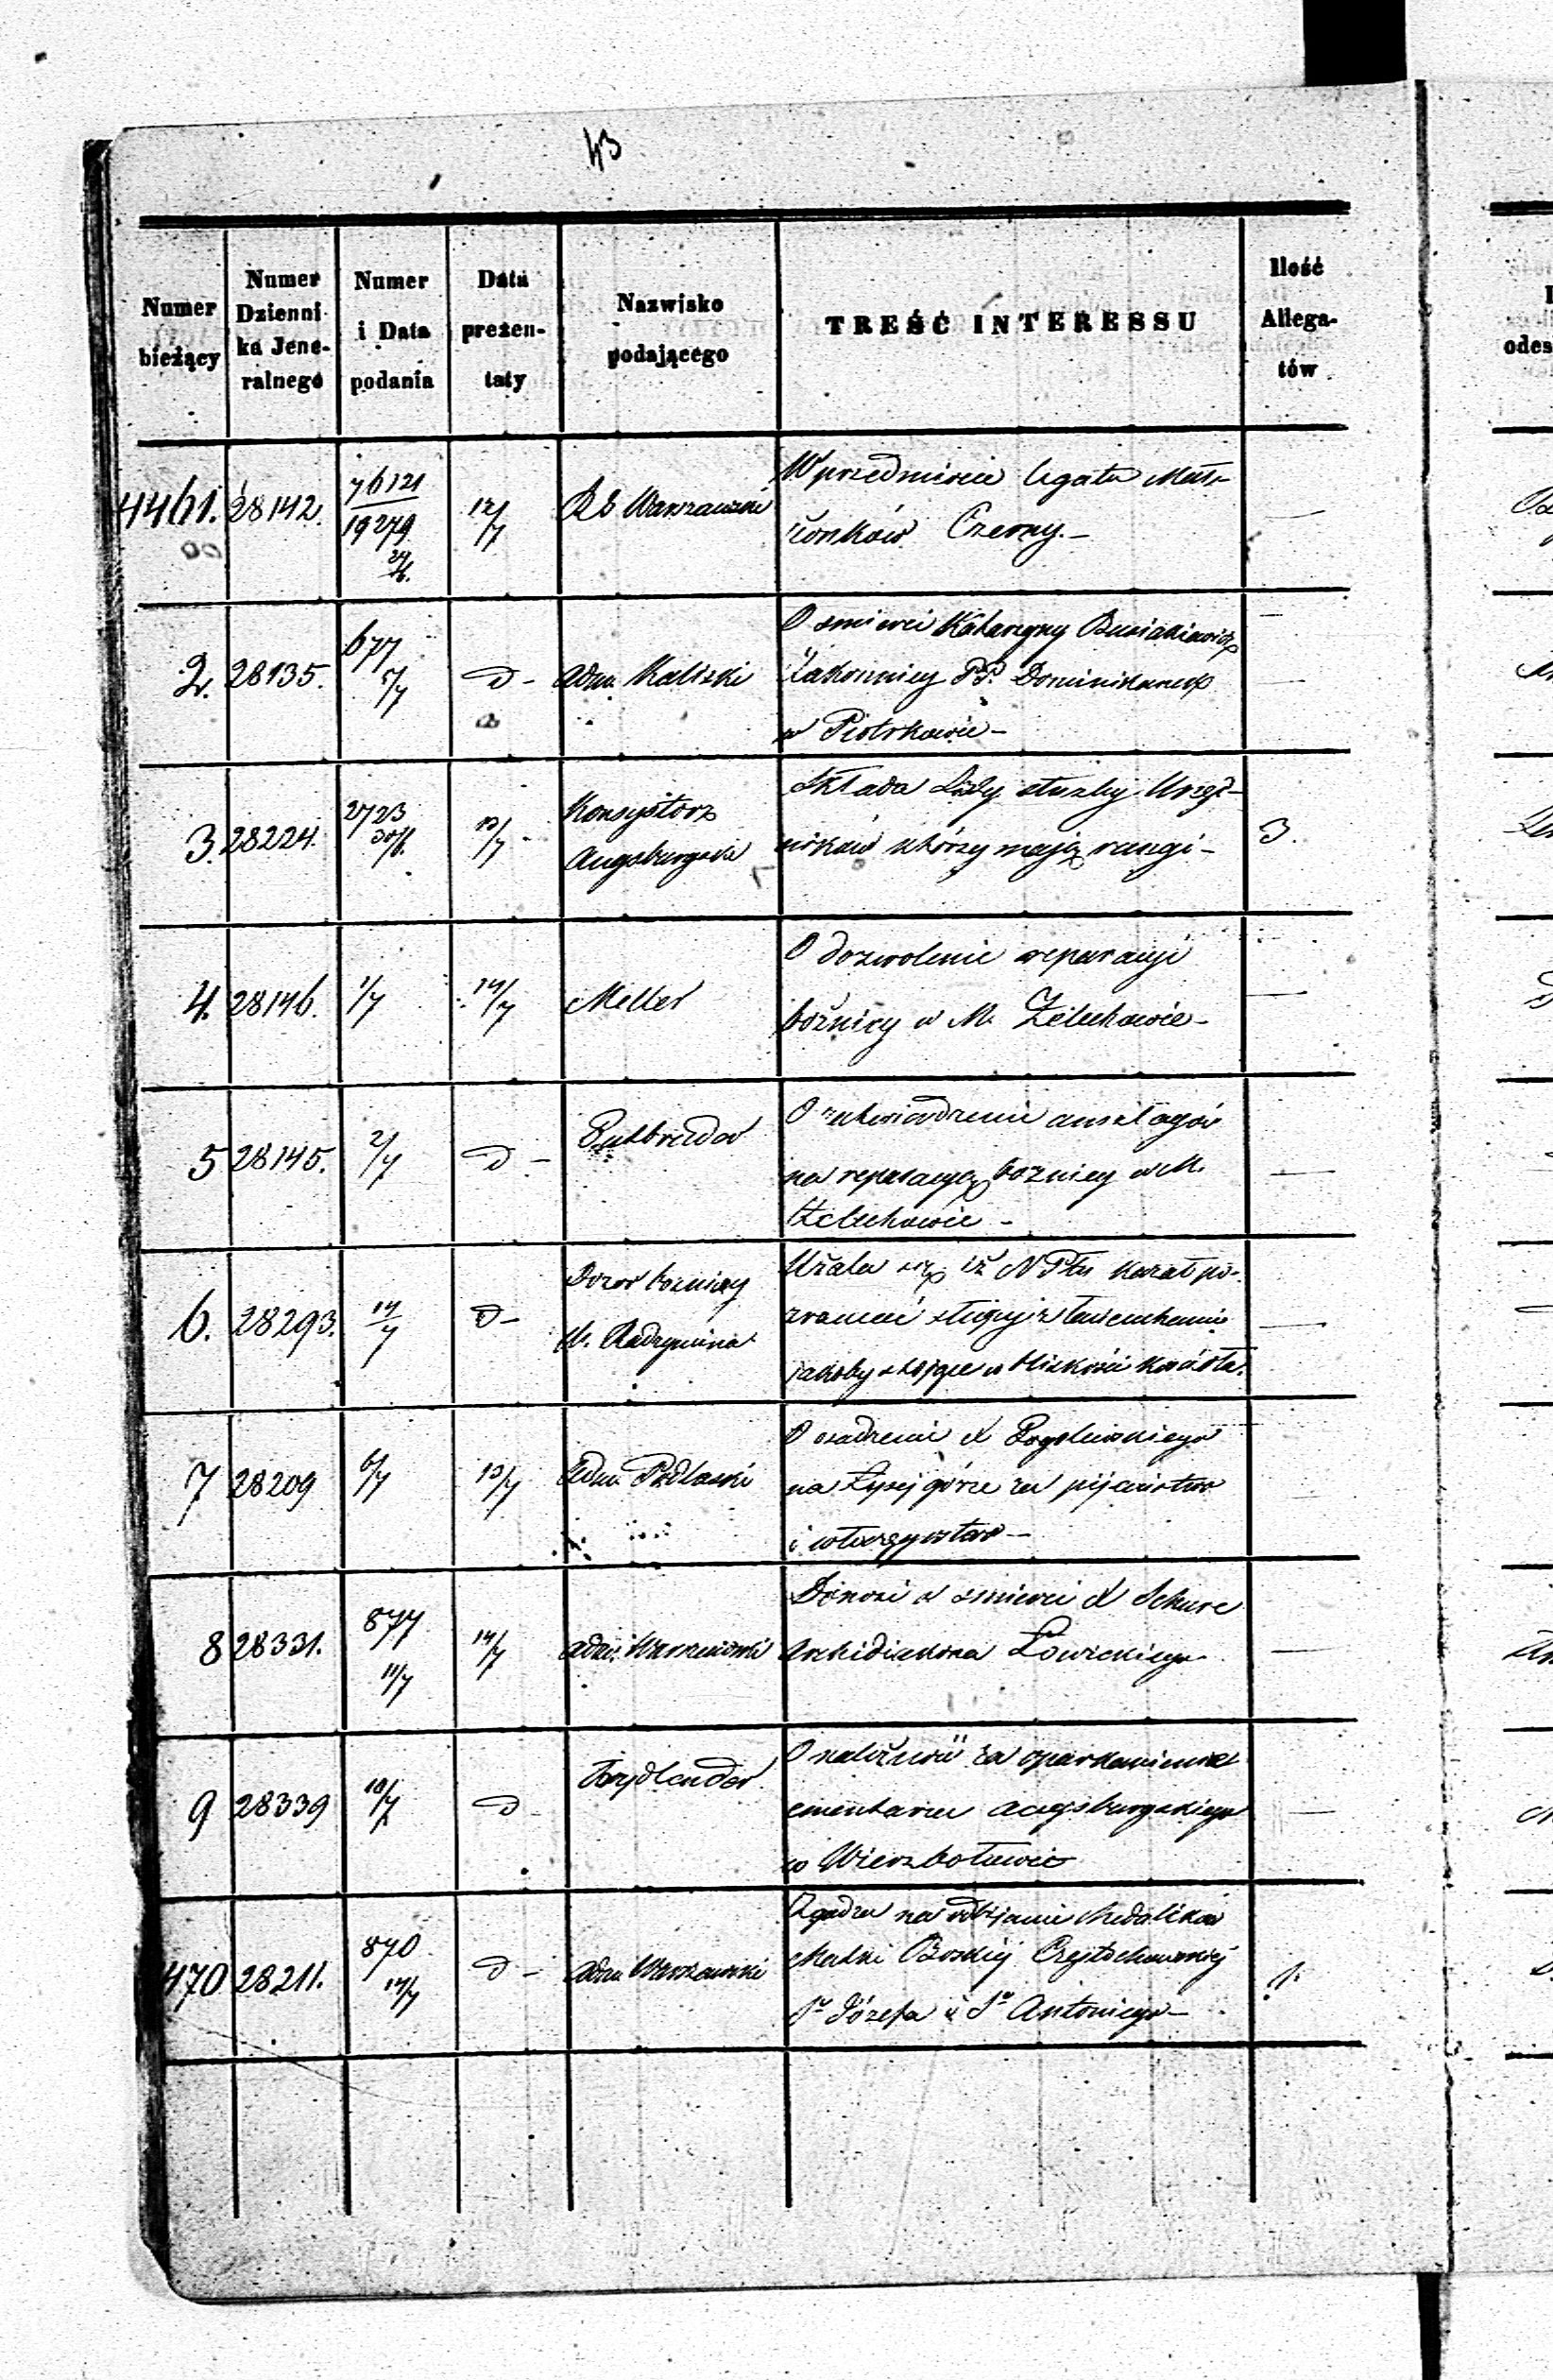 43
Numer bieżący
Numer Dzienni- ka Jene- ralnego
Numer i Data podania
Data prezen- taty
Nazwisko podającego
TREŚĆ INTERESSU
Ilość Allega- tów
4461. 28142. 76121 / 19279 24/6. 12/7 RG Warszawski W przedmiocie legatu Mał-
żonków Czerny. –
2. 28135. 677 5/7 D – Adm. Kaliski O smierci Katarzyny
Zakonnicy PP. Dominikanek
w Piotrkowie –
3. 28224. 2723 30/6. 13/7 – Konsystorz Składa Listy służby Urzęd-
Augsburgski ników którzy mają rangi – 3.
4. 28146. 1/7 14/7 Meller O dozwolenie reparacji
bóżnicy w M. Żelechowie –
5 28145. 2/7 D – O zatwierdzenie anszlagów
na reparacyą bożnicy w M.
Żelechowie –
6. 28293. 14/7 D – Dozor bożniczy Użala się iż NPłu kazał po-
M. Radzymina
jakoby stojące w bliskości kościoła.
7 28209 6/7 13/7 Adm. Podlaski O osadzenie X
na Łysej górze za pijaństwo
i włóczęgostwo –
8 28331. 877 11/7 14/7 Adm. Warszawski Donosi o smierci X
Archidiakona Łowickiego
9 28339 10/7 D – Frydlender O należność za oparkanienie
cmentarza augsburgskiego
w Wierzbołowie
470 28211. 870 14/7 D – Adm. Warszawski Zgadza na odbijanie Medalików
Matki Boskiej Częstochowskiej
Sgo Józefa i Sgo Antoniego –